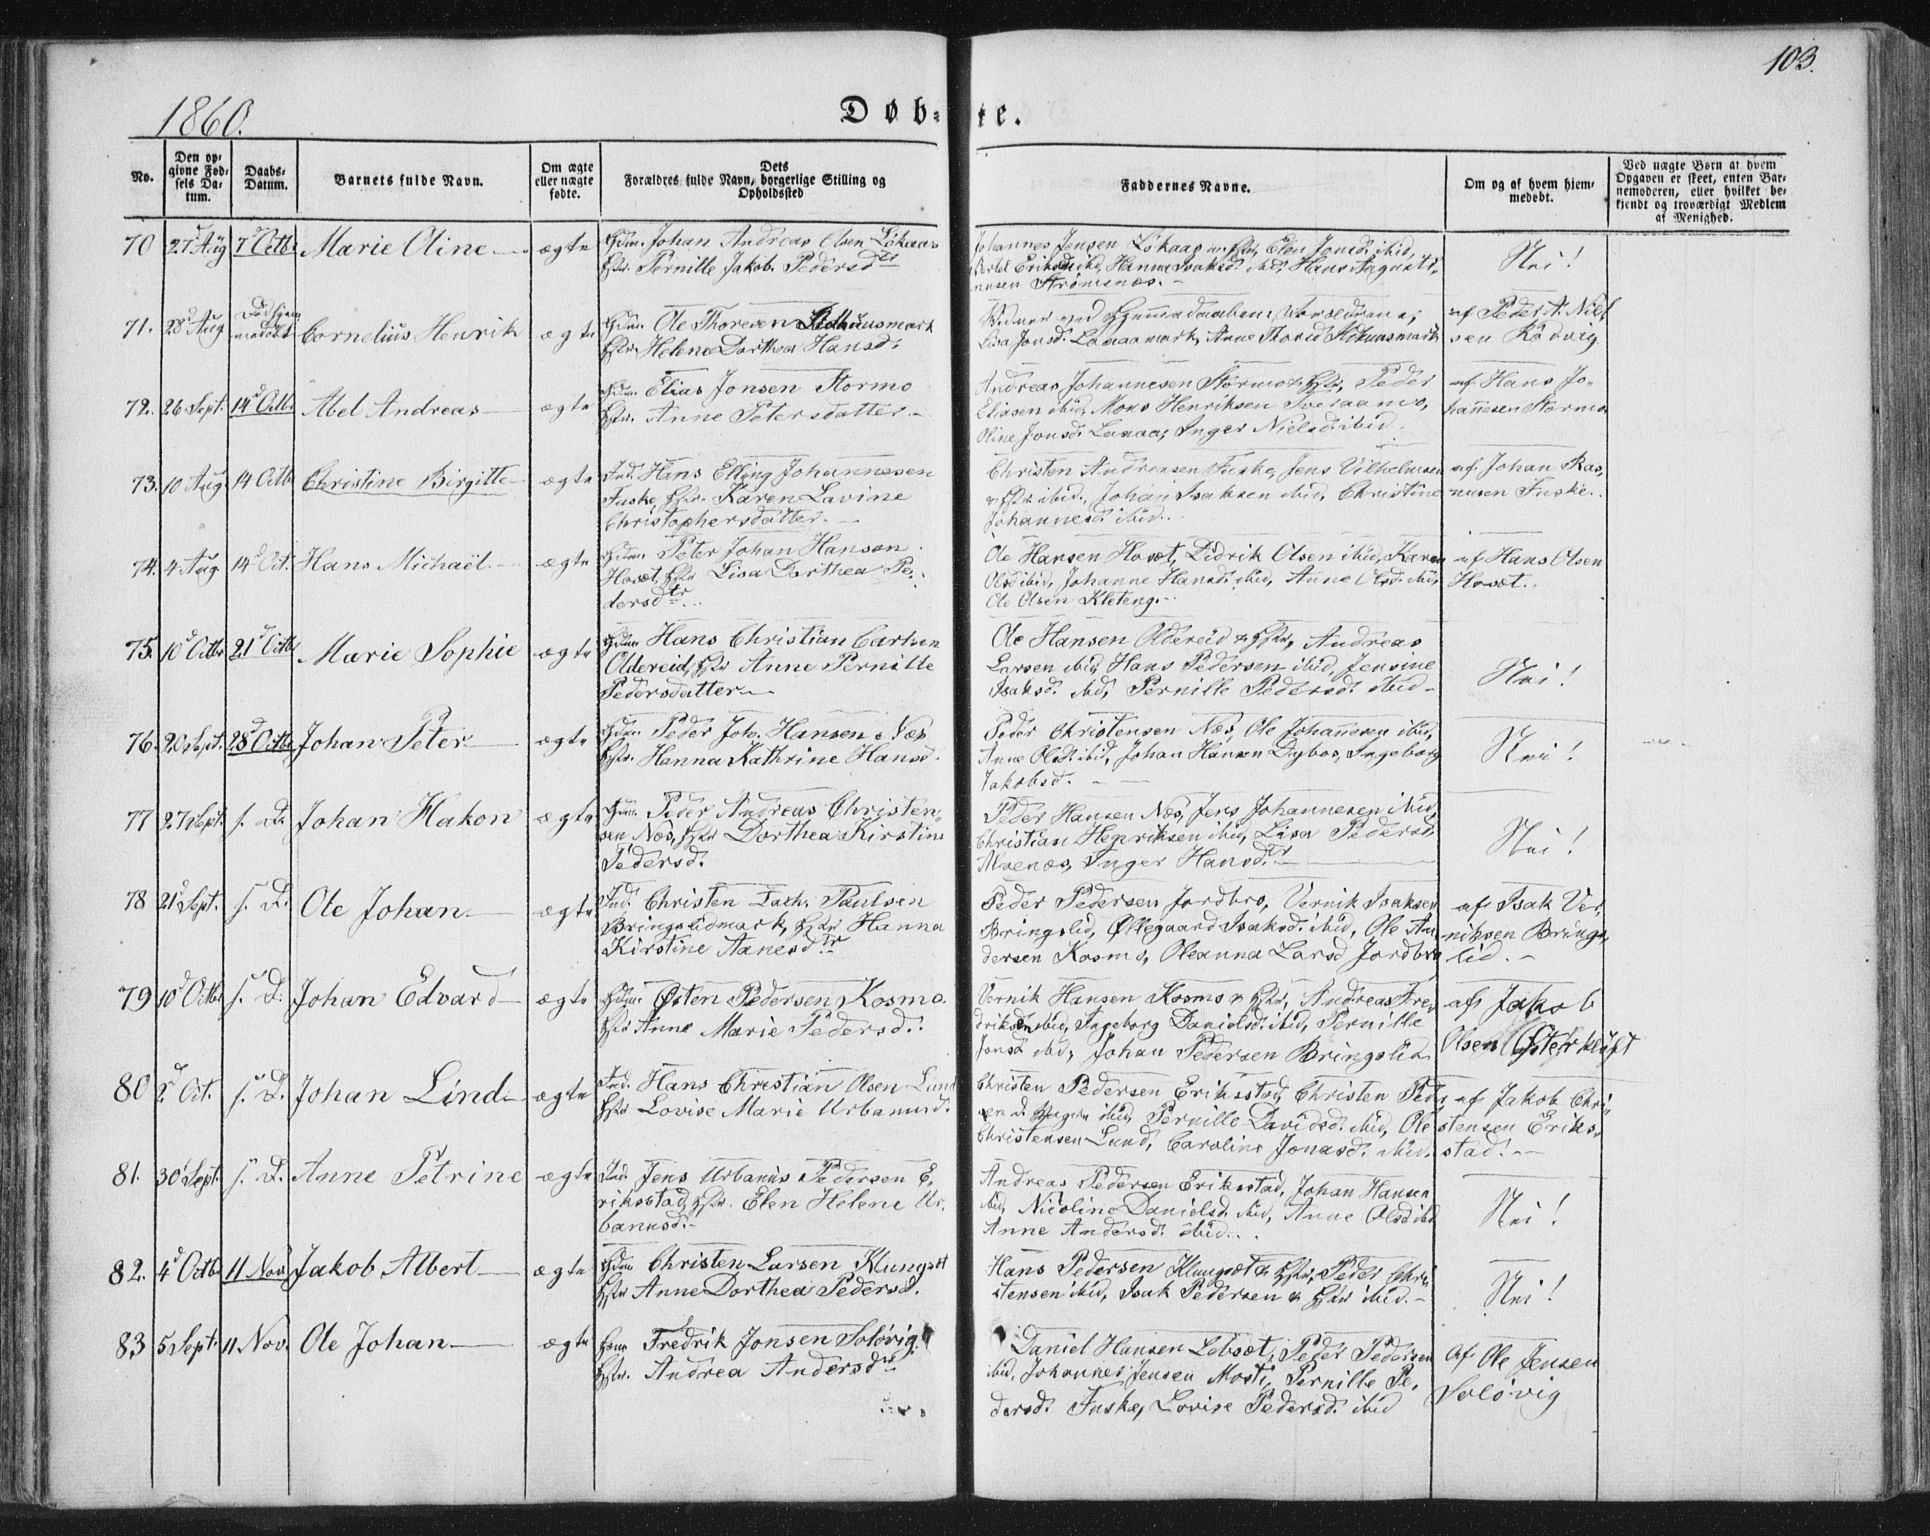 103.
1860.
Døb-te.
No.
Den op-
givne Fød-
sels Da-
tum.
Daabs-
Datum.
Barnets fulde Navn.
Om ægte
eller uægte
fødte.
Dets
Forældres fulde Navn, borgerlige Stilling og
Opholdssted
Faddernes Navne.
Om og af hvem hjem-
medøbt.
Ved uægte Børn at hvem
Opgaven er skeet, enten Bar-
nemoderen, eller hvilket be-
kjendt og troværdigt Medlem
af Menighed.
70 27 Aug 7 Octb. Marie Oline ægte
Gdm. Johan Andreas Olsen Løkaas
Hstr. Pernille Jakob. Pedersdtr
Johannes Jensen Løkaas og Hstr, Elen Jonsd. ibid,
Bertel Eriksen ibid, Hanna Isaksd. ibid, Hans Augusti-
nusen Strømsnæs.
Nei!
71. 28 Aug Cornelius Henrik ægte
Gdm. Ole Thoresen
Hstr. Helene Dorthea Hansd.
Lisa Jonsd. Lanaamark, Anne Thorsd
af Peder A. Niel
sen Rødvig
72. 26 Sept. 14 Octb. Abel Andreas ægte
Gdm. Elias Jonsen Stormo
Hstr. Anne Petersdatter
Andreas Johannesen Stormo & Hstr, Peder
Eliasen ibid, Mons Henriksen
Oline Jonsd. Lanaa, Inger Nielsd. ibid.
af Hans Jo-
hannesen Stormo
73. 10 Aug. 14 Octb. Christine Birgitte ægte
Ind. Hans Elling Johannesen
Fuske, Hstr. Karen Lavine
Christophersdatter.
Christen Andreasen Fuske, Jens Vilhelmsen
& Hstr ibid, Johan Isaksen ibid, Christine
Johannesd. ibid.
af Johan Ras,
musen Fuske.
74. 4 Aug 14 Oct. Hans Michaël ægte
Gdm. Peter Johan Hansen
Hovæt, Hstr Lisa Dorthea Pe,
dersdtr
Ole Hansen Hovæt, Didrik Olsen ibid, Karen
Olsd ibid, Johanne Hansd. ibid, Anne Olsd. ibid,
Ole Olsen Kleteng.
af Hans Olsen
Hovæt.
75. 10 Octb. 21 Octb. Marie Sophie ægte
Gdm. Hans Christian Carlsen
Oldereid, Hstr Anne Pernille
Pedersdatter
Ole Hansen Oldereid & Hstr, Andreas
Larsen ibid, Hans Pedersen ibid, Jensine
Isaksd. ibid, Pernille Pedersd. ibid
Nei!
76. 20 Sept. 28 Octb. Johan Peter ægte
Gdm. Peder Joh. Hansen Næs
Hstr. Hanna Kathrine Hansd.
Peder Christensen Næs, Ole Johannesen ibid,
Anne Olsd ibid, Johan Hansen Dybos, Ingeborg
Jakobsd.
Nei!
77 27 Sept. s. D. Johan Hakon ægte
Gdm. Peder Andreas Christen-
sen Næs, Hstr Dorthea Kirstine
Pedersd.
Peder Hansen Næs, Jens Johannesen ibid,
Christian Henriksen ibid, Lisa Pedersd.
Alvenæs, Inger Hansdtr
Nei!
78 21 Sept. s. D. Ole Johan ægte
Ind. Christen Zach. Paulsen
Bringslidmark, Hstr Hanna
Kirstine Aanesdtr
Peder Pedersen Jordbro, Vernik Isaksen
Bringslid, Øllegaard Isaksd. ibid, Ole An-
dersen Kosmo, Oleanna Larsd Jordbro
af Isak Ver,
niksen Brings,
lid.
79 10 Octb s. D. Johan Edvard ægte
Gdm. Østen Pedersen Kosmo
Hstr Anne Marie Pedersd.
Vernik Hansen Kosmo & Hstr, Andreas Fre-
driksen ibid, Ingeborg Danielsd. ibid, Pernille
Jonsd ibid, Johan Pedersen Bringslid
af Jakob
Olsen Østerkløft
80 2 Oct. s. D. Johan Lind ægte
Ind. Hans Christian Olsen Lund
Hstr Lovise Marie Urbanusd.
Christen Pedersen Eriksstad, Christen Peder
ibid, Pernille Davidsd. ibid, Ole
Christensen Lund, Caroline Jonasd. ibid.
af Jakob Chri-
stensen Eriks,
stad.
81. 30 Sept. s. D. Anne Petrine ægte
Ind. Jens Urbanus Pedersen E,
riksstad, Hstr. Elen Helene Ur,
banusd.
Andreas Pedersen Eriksstad, Johan Hansen
ibid, Nicoline Danielsd. ibid, Anne Olsd ibid
Anne Andersd. ibid.
Nei!
82. 4 Octb. 11 Nov. Jakob Albert ægte
Gdm. Christen Larsen Klungset
Hstr Anne Dorthea Pedersd.
Hans Pedersen Klungset & Hstr, Peder Chri
stensen ibid, Isak Pedersen & Hstr ibid.
Nei!
83 5 Sept. 11 Nov. Ole Johan ægte
Hmn. Fredrik Jonsen Soløvig.
Hstr. Andrea Andersdtr
Daniel Hansen Lebsæt, Peder Pedersen
ibid, Johannes Jensen Mosti, Pernille Pe,
dersd. Fuske, Lovise Pedersd. ibid
af Ole Jensen
Soløvig